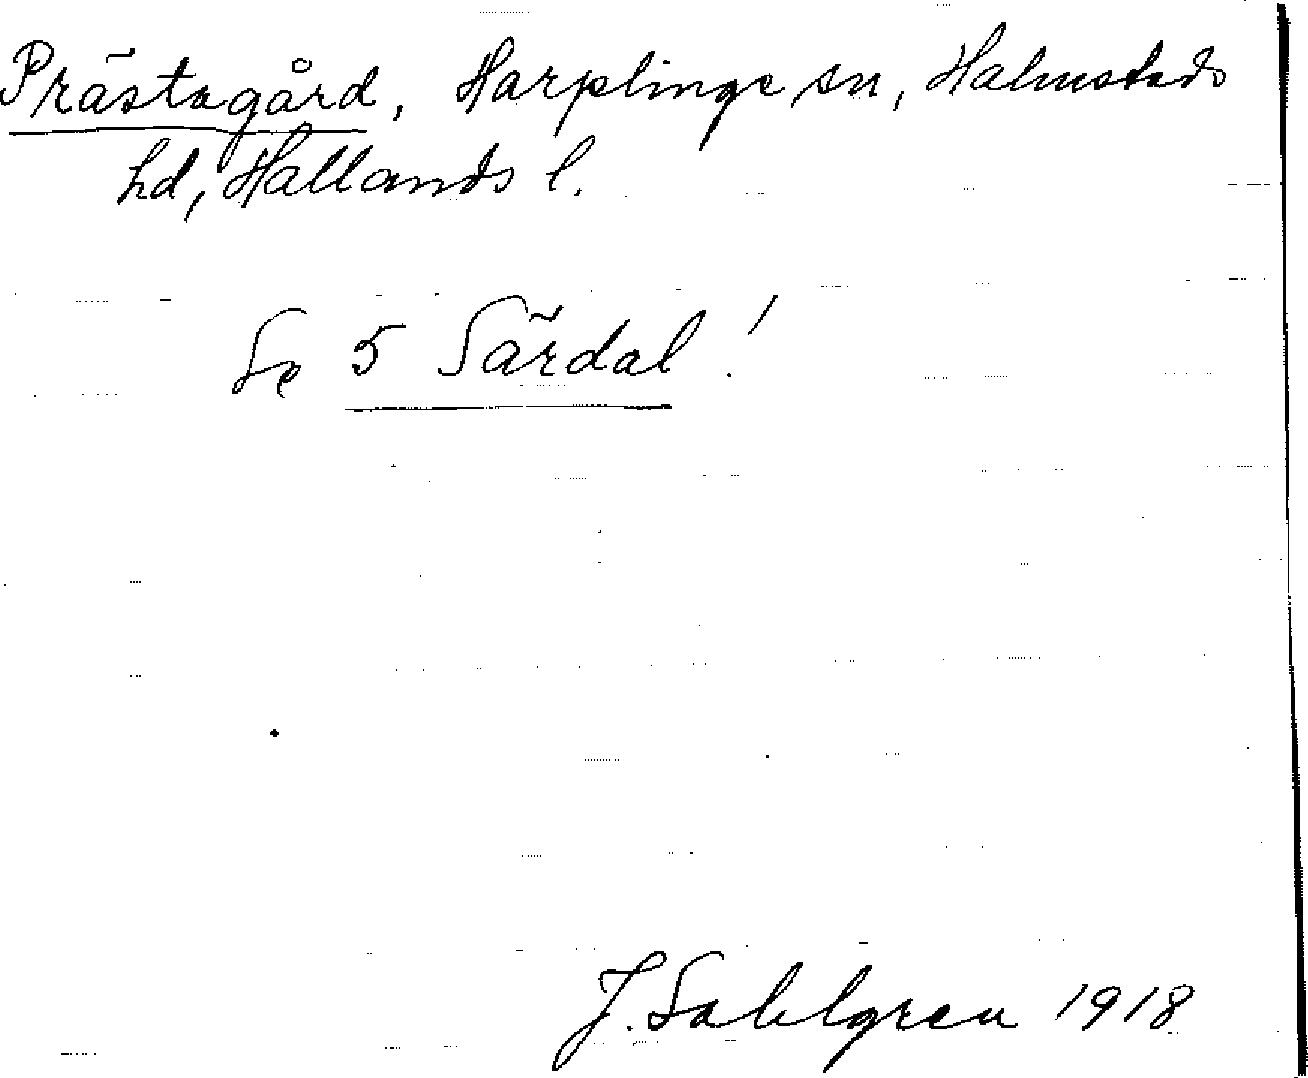 Prästagård, Harplinge sn, Halmstads
hd, Hallands l.
Se 5 Särdal!
J. Sahlgren 1918